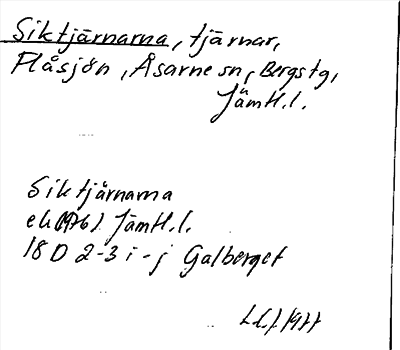 Siktjärnarna, tjärnar,
Flåsjön, Åsarne sn, Bergs tg,
Jämtl.l.
Siktjärnarna
ek (1976) Jämtl.l.
18 D 2-3 i-j Galberget
1977